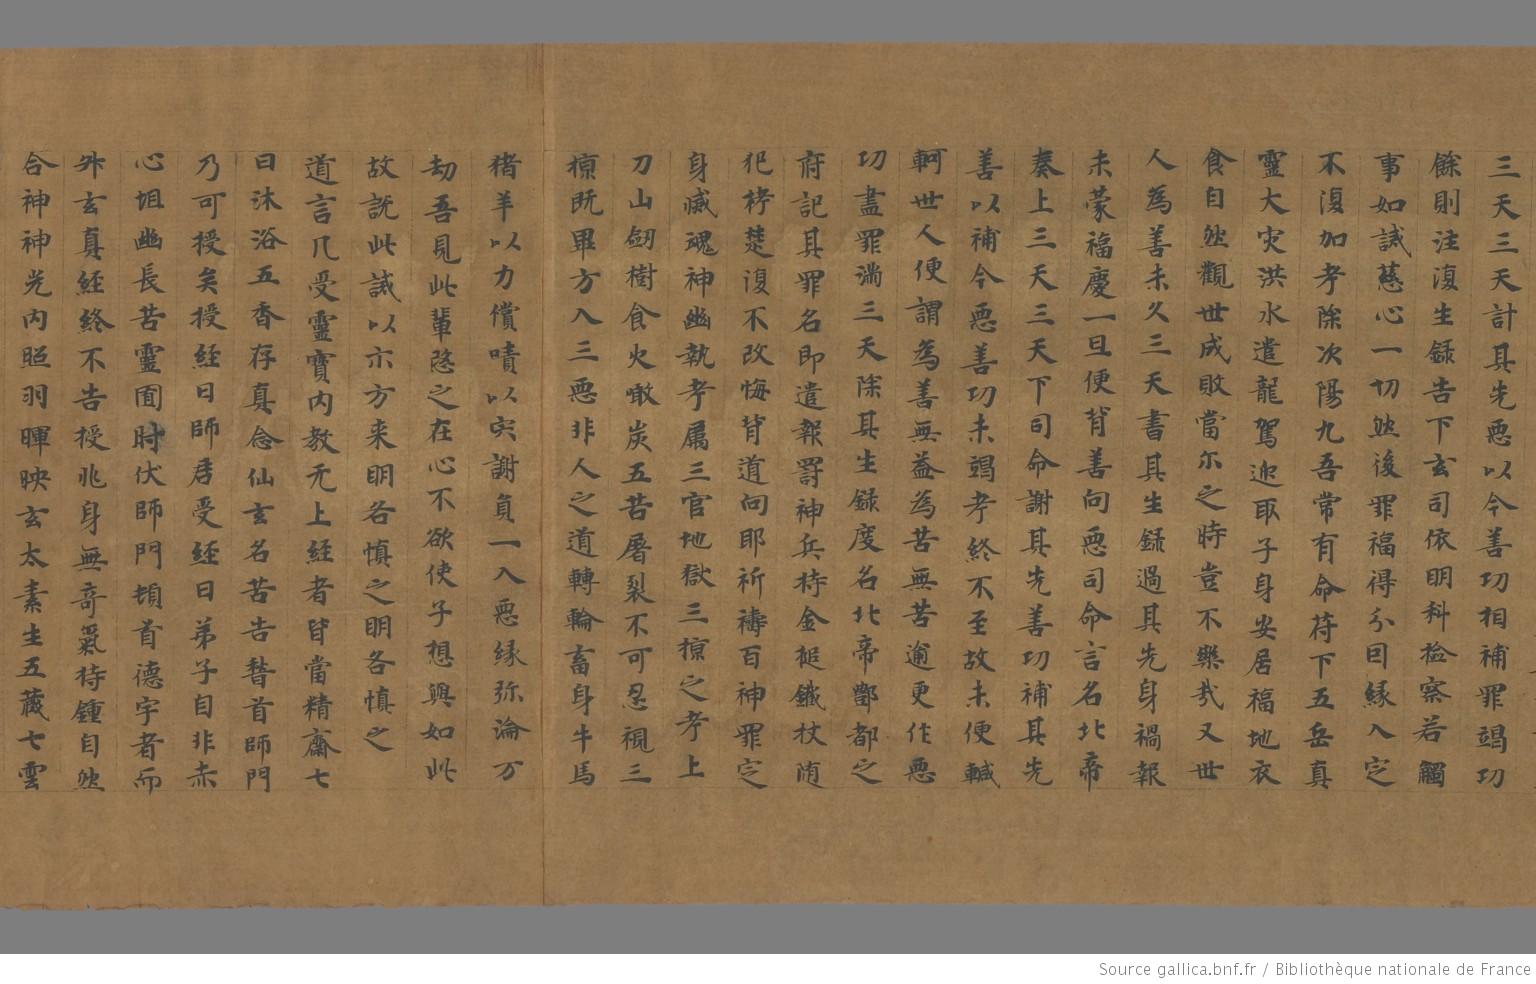 三天三天計其先惡以今善功相補罪竭功
餘則注復生録告下玄司依明科檢察若觸
事如誡慈心一切然後罪福得分回縁入定
不復加考除次陽九吾常有命符下五岳真
靈大灾洪水遣龍駕迎取子身安居福地衣
食自然觀世成敗當尔之時豈不樂哉又世
人為善未久三天書其生録過其先身禍報
未蒙福慶一旦便背善向惡司命言名北帝
奏上三天三天下司命謝其先善功補其先
善以補今惡善功未竭考終不至故未便輱
軻世人便謂為善無益為苦無苦逾更作惡
功盡罪滿三天除其生録度名北帝酆都之
府記其罪名即遣報罰神兵持金槌鐵杖随
犯栲楚復不改悔背道向耶祈禱百神罪定
身滅魂神幽執考屬三官地獄三掠之考上
刀山劒樹食火噉炭五苦屠裂不可忍視三
掠既畢方入三惡非人之道轉輪畜身牛馬
猪羊以力償嘖以宍謝負一入惡縁弥淪万
劫吾見此輩愍之在心不欲使子想與如此
故説此誡以示方来明各慎之明各慎之
道言凡受靈寶内教无上經者皆當精齋七
日沐浴五香存真念仙玄名苦告朁首師門
乃可授矣授經日師君受經日弟子自非赤
心坦幽長苦靈囿時伏師門頓首德宇者而
外玄真經終不告授兆身無奇氣持鍾自然
合神神光内照羽暉映玄太素生五藏七雲
Source gallica.bnf.fr / Bibliothèque nationale de France